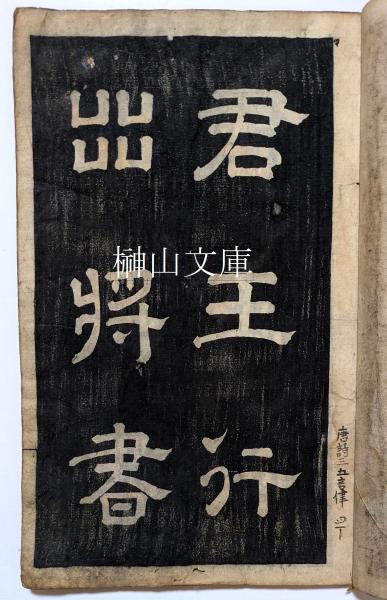 君王行
出將書
唐詩三五言律 四丁
榊山文庫